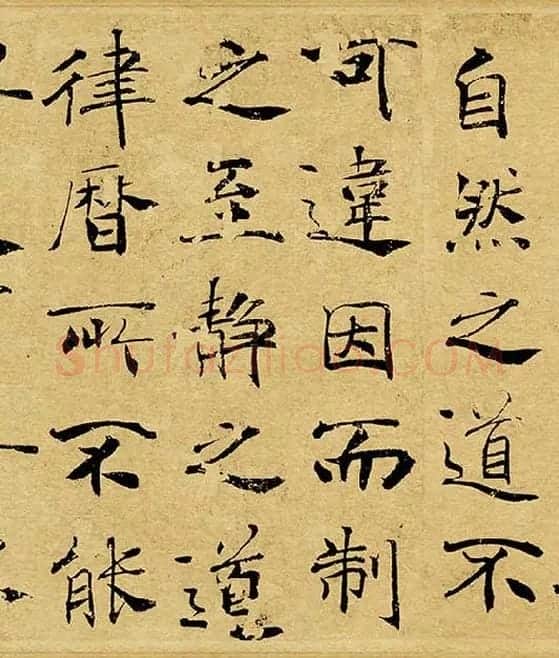 自然之道不
可違因而制
之至静之道
律暦所不能